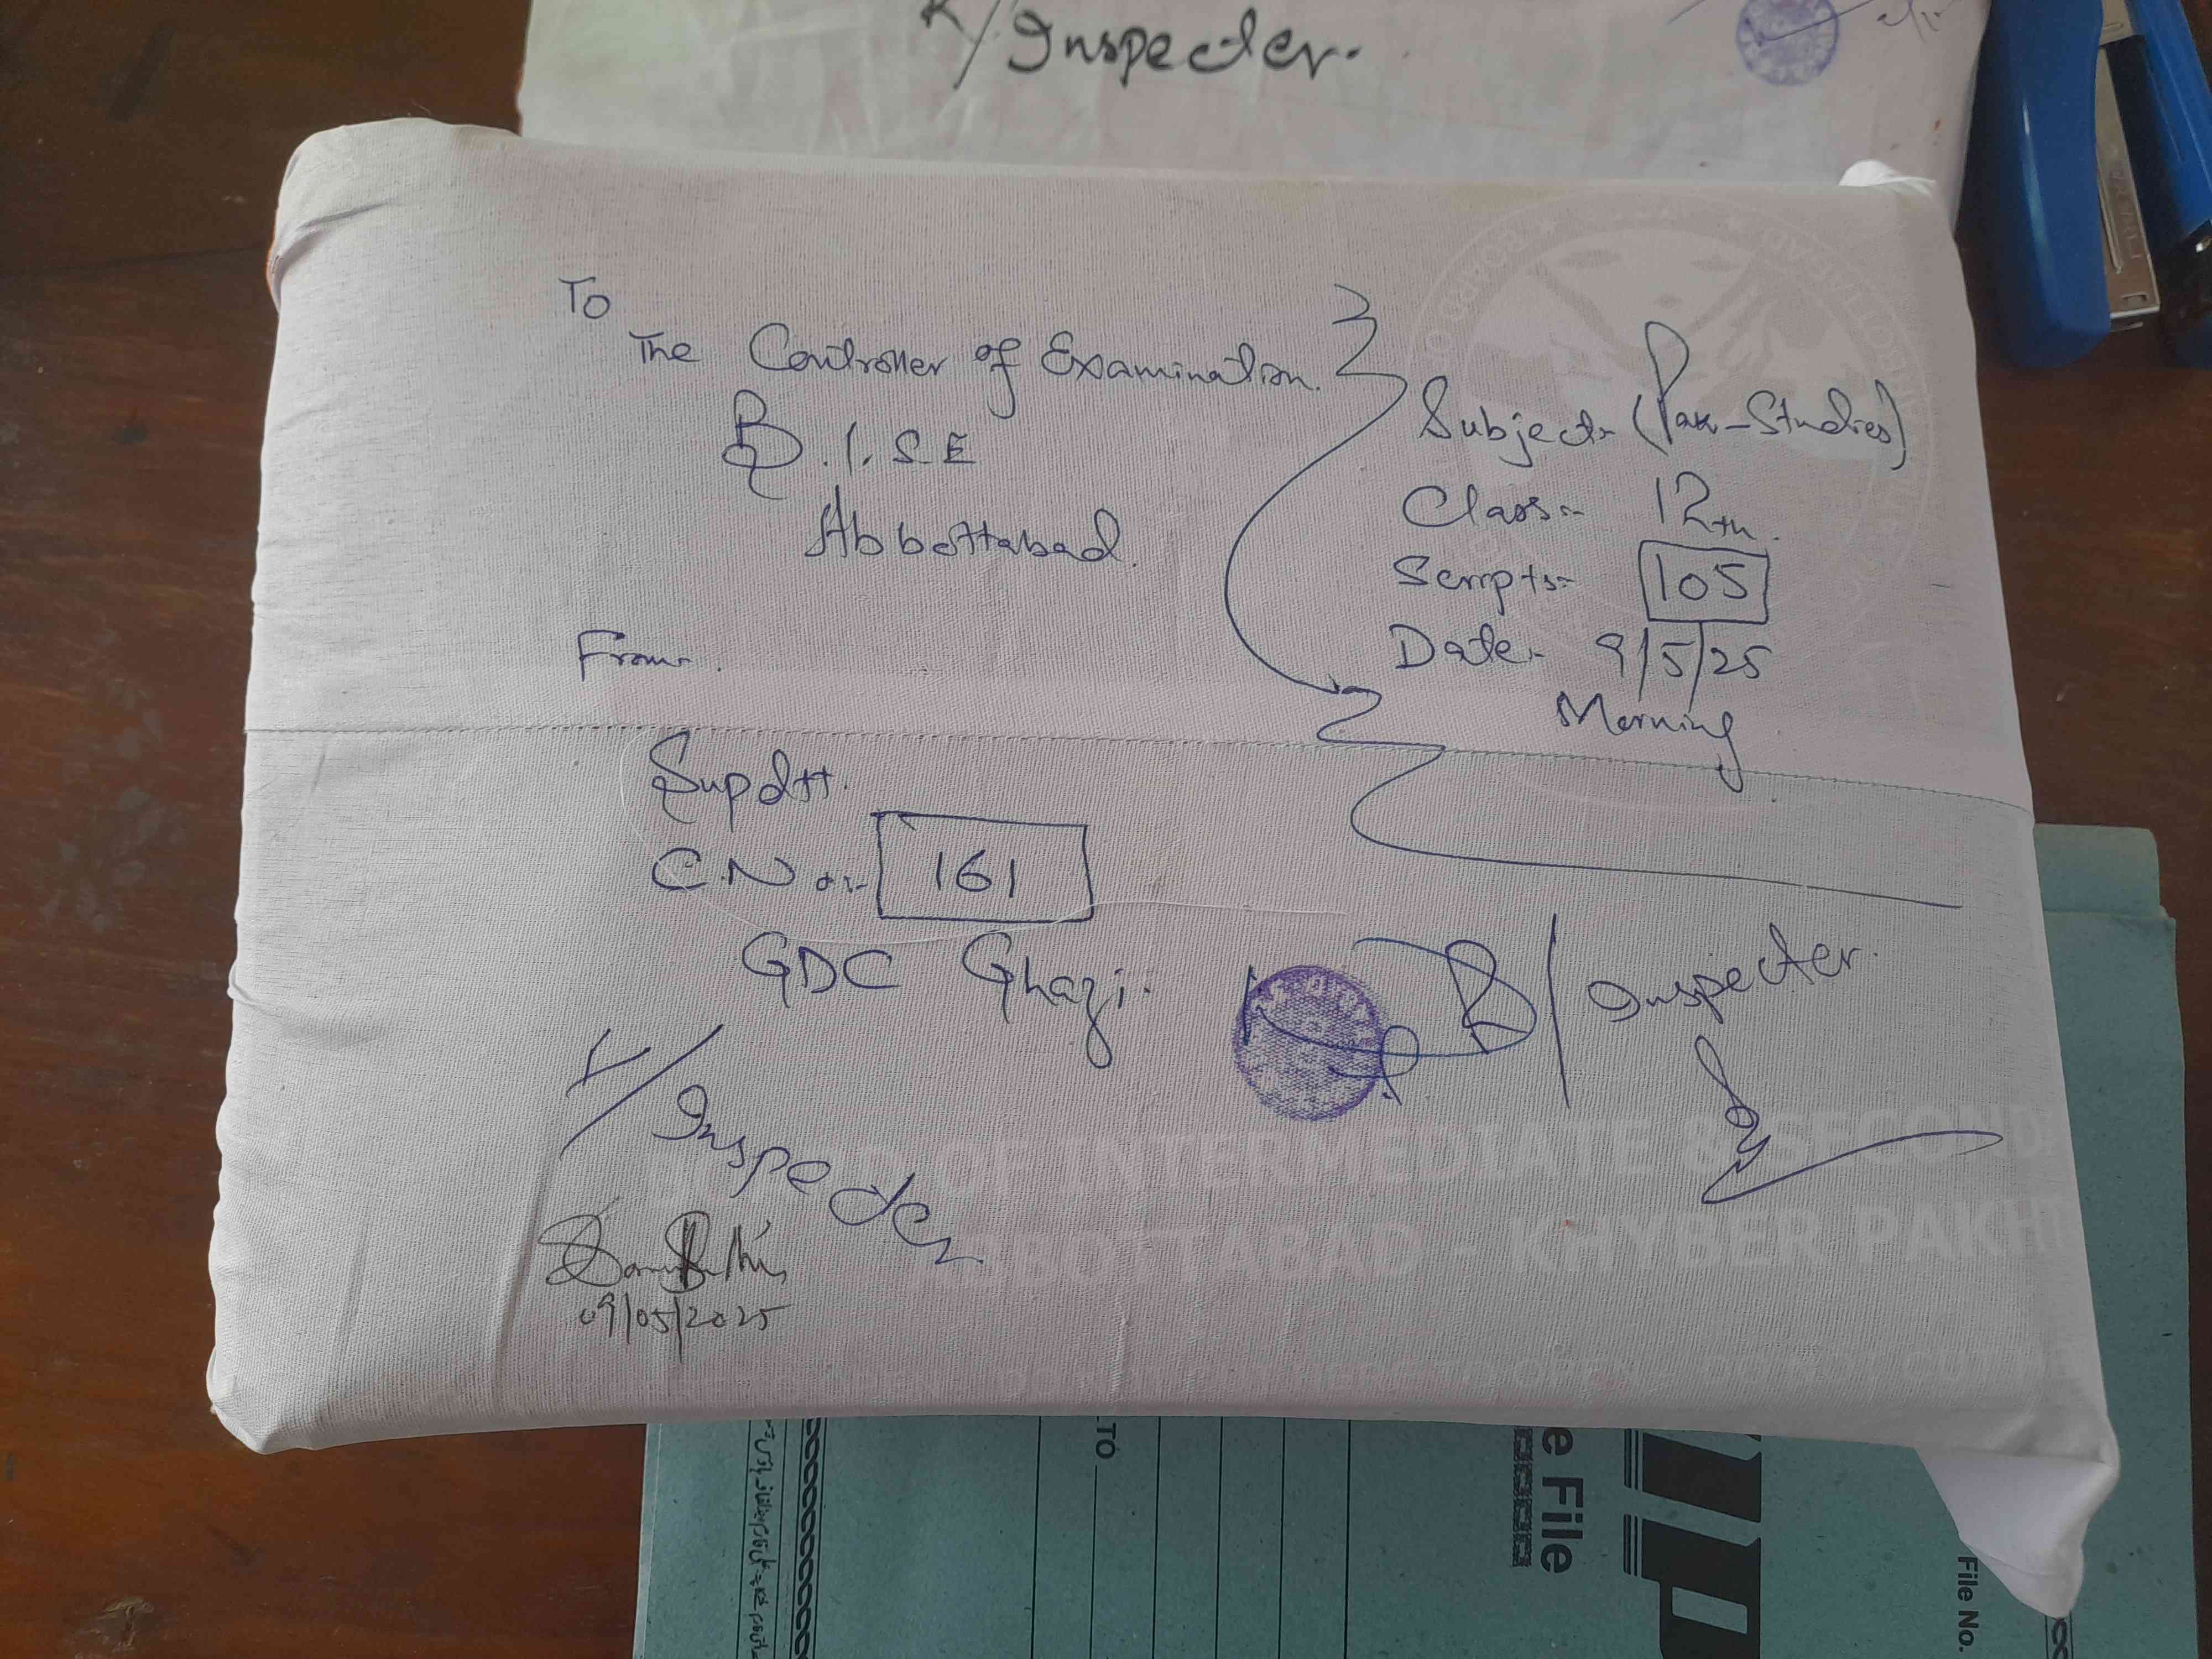 /Inspecter.
To
The Controller of Examination.
B.I.S.E
Abbottabad.
Subject:- (Pak-Studies)
Class:- 12th.
Scripts:- 105
Date:- 9/5/25
Morning
From:-
Supdtt.
C.No:- 161
GDC Ghazi.
R/Inspecter.
/Inspecter
09/05/2025
OF INTERMEDIATE & SECOND
KHYBER PAKH
TO
e File
File No.